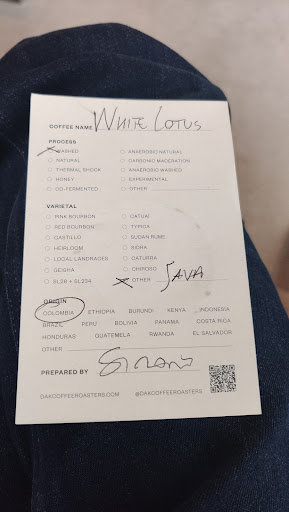 COFFEE NAME WHITE LOTUS
PROCESS
WASHED ANAEROBIC NATURAL
NATURAL CARBONIC MACERATION
THERMAL SHOCK ANAEROBIC WASHED
HONEY EXPERIMENTAL
CO-FERMENTED OTHER
VARIETAL
PINK BOURBON CATUAI
RED BOURBON TYPICA
CASTILLO SUDAN RUME
HEIRLOOM SIDRA
LOCAL LANDRACES CATURRA
GEISHA CHIROSO
SL28 + SL234 OTHER JAVA
ORIGIN
COLOMBIA ETHIOPIA BURUNDI KENYA INDONESIA
BRAZIL PERU BOLIVIA PANAMA COSTA RICA
HONDURAS GUATEMELA RWANDA EL SALVADOR
OTHER
PREPARED BY
DAKCOFFEEROASTERS.COM @DAKCOFFEEROASTERS